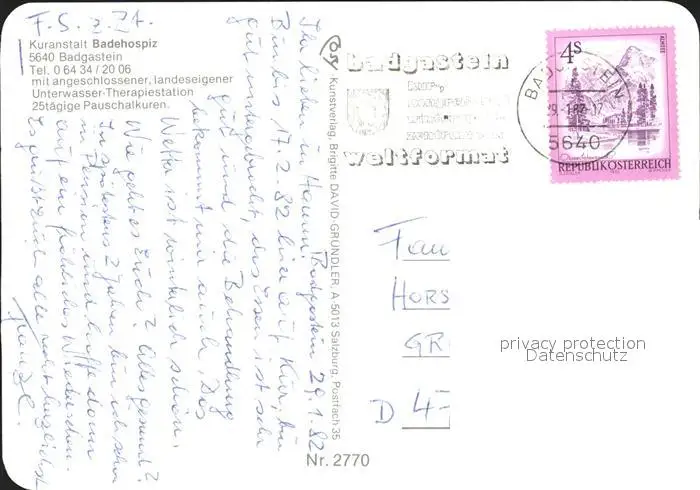 F.S. z. Zt.
Kuranstalt Badehospiz
5640 Badgastein
Tel. 0 64 34 / 20 06
mit angeschlossener, landeseigener
Unterwasser-Therapiestation
25tägige Pauschalkuren.
Badgastein 29.1.82
Ihr Lieben in Hamm!
Bin bis 17.2.82 hier auf Kur, bin
gut untergebracht, das Essen ist sehr
gut und die Behandlung
bekommt mir auch. Das
Wetter ist winterlich schön.
Wie geht es Euch? Alles gesund?
In spätestens 2 Jahren bin ich schon
in Pension und hoffe dann
auf ein fröhliches Wiedersehen.
Es grüßt Euch alle recht herzlichst
Cosy
Kunstverlag. Brigitte DAVID-GRÜNDLER, A-5013 Salzburg, Postfach 35
Nr. 2770
badgastein
weltformat
BADGASTEIN
29.1.82-17
5640
4s
ALMSEE
REPUBLIK ÖSTERREICH
Fam
HORS
GR
D 47
privacy protection
Datenschutz